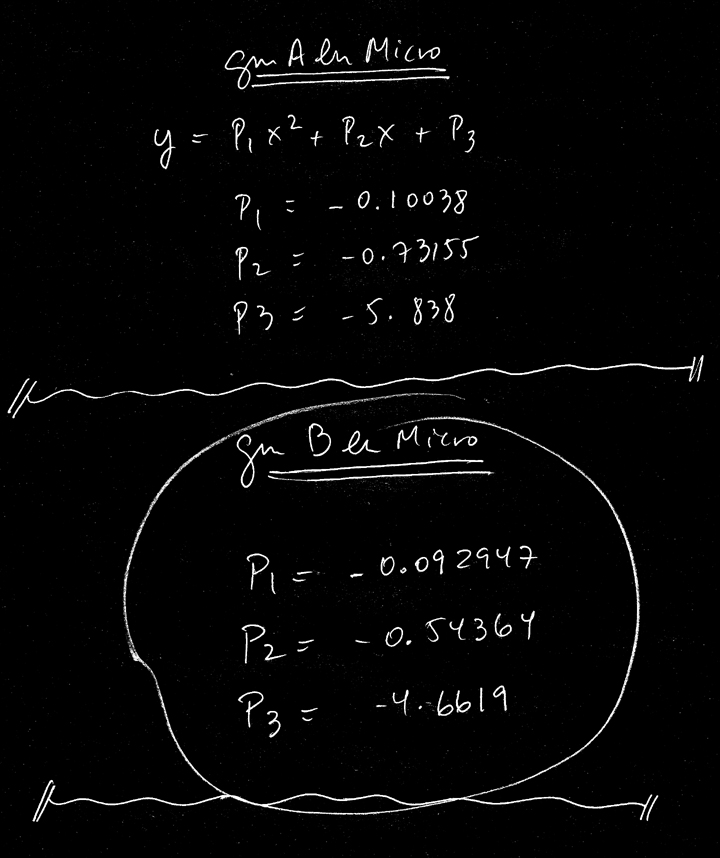 A Micro
y = P₁ x² + P₂ x + P₃
P₁ = - 0.10038
P₂ = -0.73155
P3 = -5.838
B Micro
P₁ = - 0.092947
P₂ = - 0.54364
P₃ = -4.6619